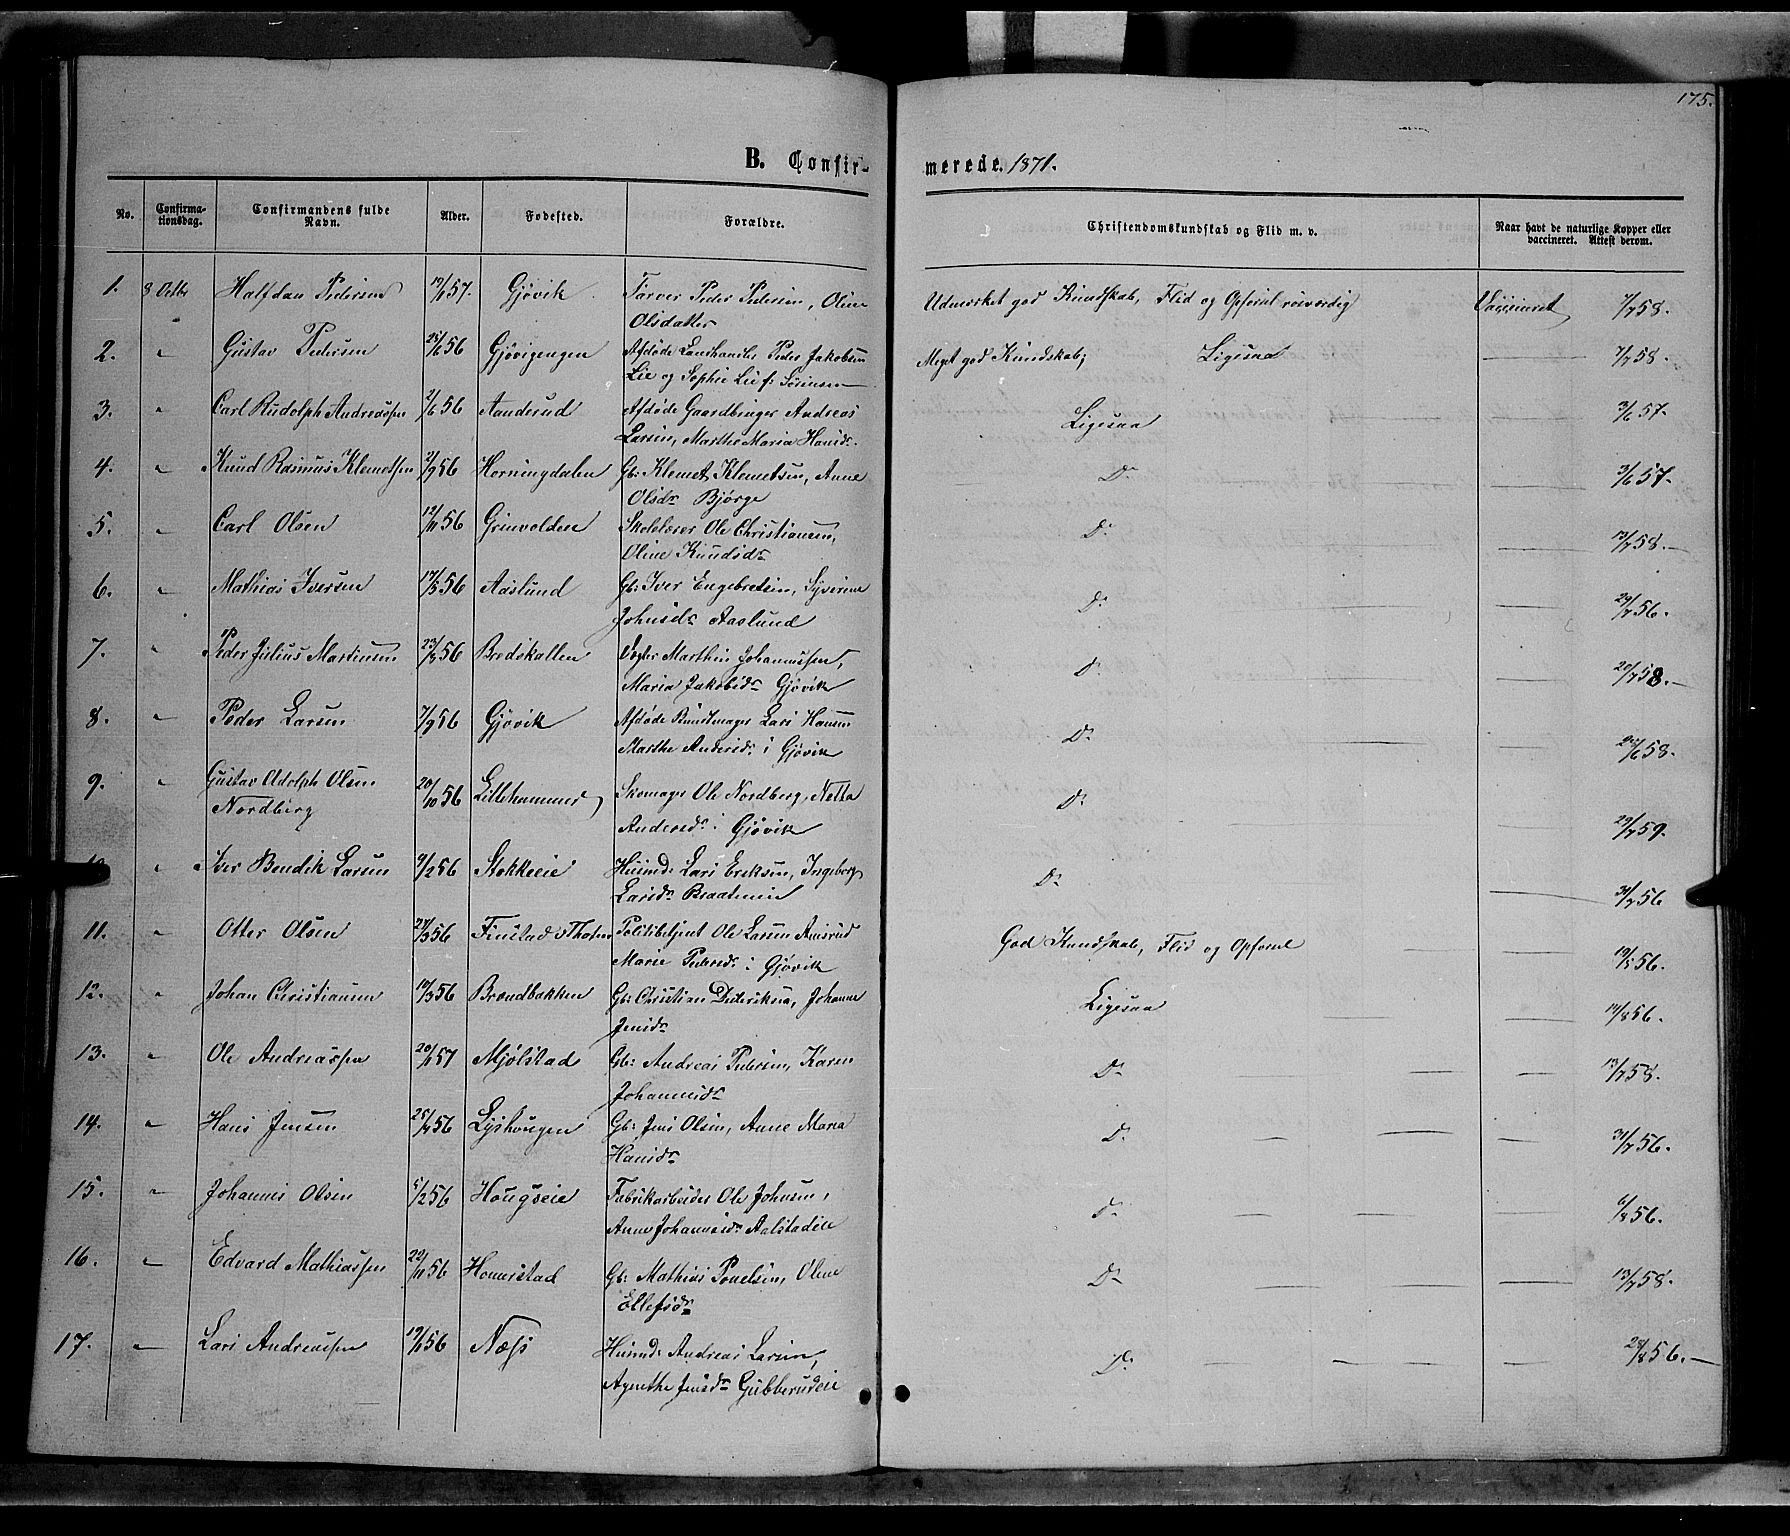 175.
B. Confir-
merede. 1871.
No.
Confirma-
tionsdag.
Confirmandens fulde
Navn.
Alder.
Fødested.
Forældre.
Christendomskundskab og Flid m. v.
Naar havt de naturlige Kopper eller
vaccineret. Attest derom.
1. 8 Octbr Halfdan Pedersen 19/1 57. Gjøvik Farver Peder Pedersen, Oline
Olsdatter
Udmærket god Kundskab, Flid og Opførsel roesværdig Vaccineret 7/7 58.
2. " Gustav Pedersen 25/6 56 Gjøvigengen Afdøde Landhandler Peder Jakobsen
Lie og Sophie Lie f: Sørensen
Meget god Kundskab; Ligesaa 7/7 58.
3. " Carl Rudolph Andreassen 2/6 56 Aanderud Afdøde Gaardbruger Andreas
Larsen, Marthe Maria Hansdr.
Ligesaa 3/6 57.
4. " Knud Rasmus Klemetsen 2/9 56 Horningdalen Gb: Klemet Klemetsen, Anne
Olsdr Bjørge
Do 3/6 57.
5. " Carl Olsen 12/11 56 Grinvolden Skolelærer Ole Christiansen,
Oline Knudsdr
Do 13/7 58.
6. " Mathias Iversen 17/5 56 Aaslund Gb: Iver Engebretsen, Syverine
Johnsdr Aaslund
Do 29/7 56.
7. " Peder Julius Martinsen 23/8 56 Bredskallen Marthin Johannessen,
Maria Jakobsdr Gjøvik
Do 20/7 58.
8. " Peder Larsen 7/9 56 Gjøvik Afdøde Bundtmager Lars Hansen
Marthe Andersdr i Gjøvik
Do /6 58.
9. " Gustav Adolph Olsen
Nordberg 20/10 56 Lillehammer Skomager Ole Nordberg, Netta
Andersdr i Gjøvik
Do 29/7 59.
" Iver Bendik Larsen 9/2 56 Stokkeeie Husmd: Lars Eriksen, Ingeborg
Larsdr Braatenen
Do 31/7 56
11. " Otter Olsen 27/3 56 Finstad v Thoten Politibetjent Ole Larsen Amsrud
Marie Pedersdr i Gjøvik
God Kundskab, Flid og Opførsel 19/5 56.
12. " Johan Christiansen 19/3 56 Brændbakken Gb: Christian Dideriksen, Johanne
Jensdr
Ligesaa 14/8 56.
13. " Ole Andreassen 20/1 57 Mjølstad Gb: Andreas Pedersen, Karen
Johannesdr
Do 13/7 58.
14. " Hans Jensen 25/4 56 Lyshougen Gb: Jens Olsen, Anne Maria
Hansdr
Do 31/7 56.
15. " Johannes Olsen 5/2 56 Hougseie Fabrikarbeider Ole Johnsen,
Anne Johannesdr Aalstadeie
Do 6/8 56.
16. " Edvard Mathiassen 22/11 56 Honerstad Gb: Mathias Povelsen, Oline
Ellefsdr
Do 13/7 58.
17. " Lars Andreassen 19/1 56 Næss Husmd: Andreas Larsen,
Agnethe Jensdr Gubberudeie
Do 28/8 56.